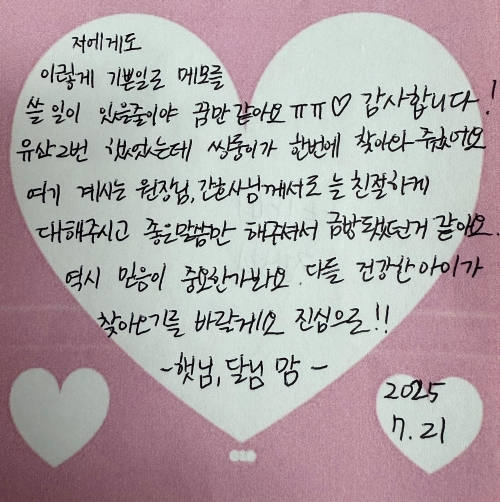 저에게도
이렇게 기쁜일로 메모를
쓸 일이 있을줄이야 꿈만 같아요 ㅠㅠ♡ 감사합니다!
유산2번 했었는데 쌍둥이가 한번에 찾아와 주었어요
여기 계시는 원장님, 간호사님께서도 늘 친절하게
대해주시고 좋은말씀만 해주셔서 금방됐었던거 같아요.
역시 믿음이 중요한가봐요. 다들 건강한아이가
찾아오기를 바랄게요 진심으로!!
-햇님, 달님 맘-
2025
7. 21